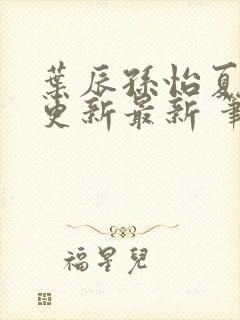 葉辰孫怡夏
更新最新 筆
福星兒